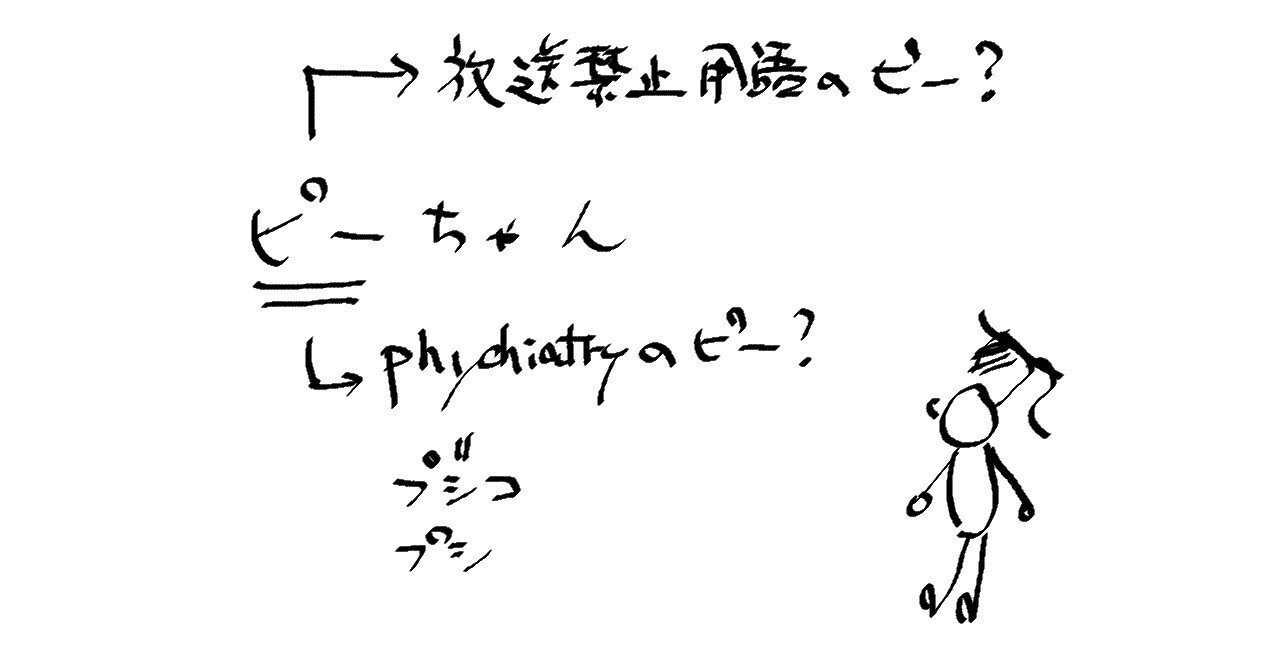 放送禁止用語のピー?
ピーちゃん
phychiatryのピー?
プジコ
プシ